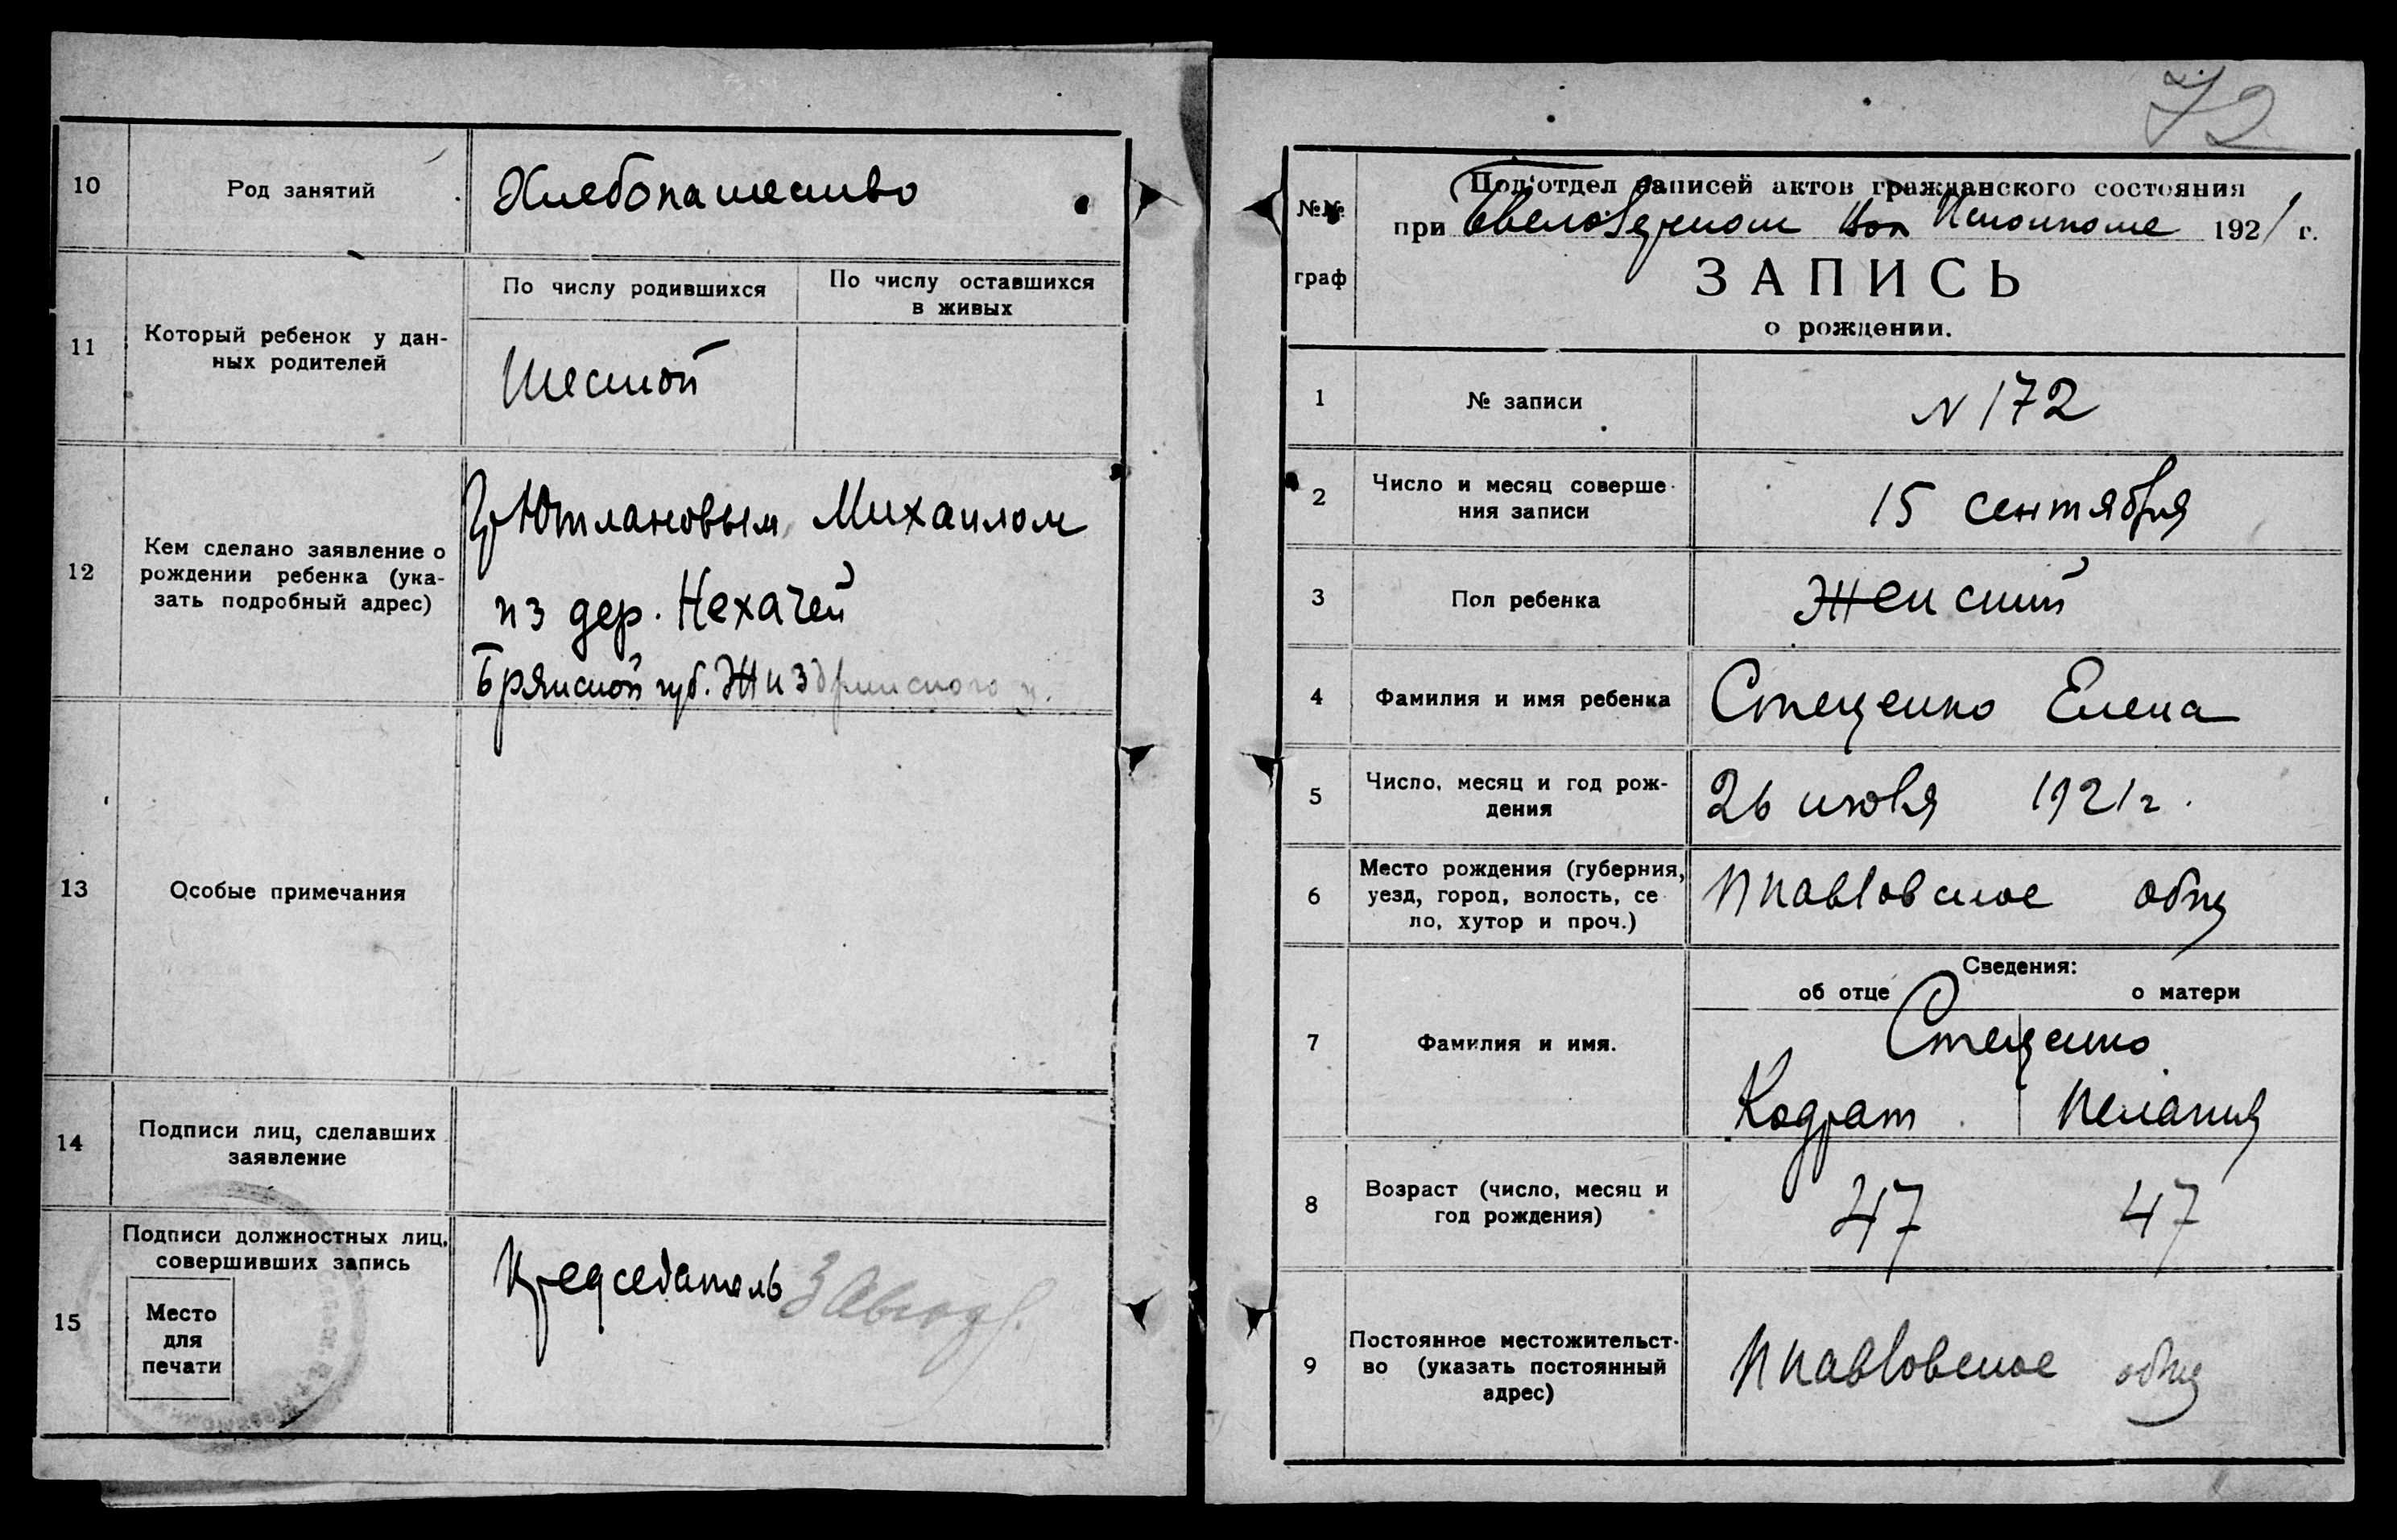 10
Род занятий
Хлебопашество
11
Который ребенок у дан-
ных родителей
По числу родившихся
По числу оставшихся
в живых
Шестой
12
Кем сделано заявление о
рождении ребенка (ука-
зать подробный адрес)
гр Ютлановым Михаилом
из дер. Нехачей
Брянской губ. Жиздринского у.
13
Особые примечания
14
Подписи лиц, сделавших
заявление
15
Подписи должностных лиц,
совершивших запись
Место
для
печати
Председатель
72
№№
граф
Под'отдел записей актов гражданского состояния
при Вол Исполкоме 1921 г.
ЗАПИСЬ
о рождении.
1
№ записи
N 172
2
Число и месяц соверше-
ния записи
15 сентября
3
Пол ребенка
Женский
4
Фамилия и имя ребенка
Стеценко Елена
5
Число, месяц и год рож-
дения
26 июля 1921 г.
6
Место рождения (губерния,
уезд, город, волость, се-
ло, хутор и проч.)
Ппавловское общ
Сведения:
об отце
о матери
7
Фамилия и имя.
Стеценко
Кодрат Пелагия
8
Возраст (число, месяц и
год рождения)
47 47
9
Постоянное местожительст-
во (указать постоянный
адрес)
Ппавловское общ